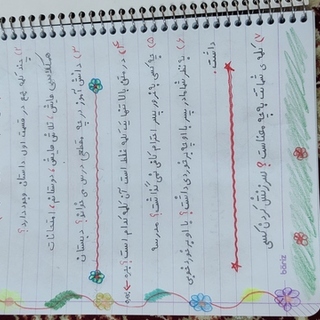 ۲) چند کلمه جمع در قسمت اول داستان وجود دارد؟
همکلاسی هایش، تلاش هایش، دوستانم، امتحانات
۳) دانش آموز در چه مقطعی درس می خواند؟ دبستان
۴) در متن بالا تنها یک کلمه غلط است آن کلمه کدام است؟
۵) چه کسی به غرور پسر احترام کافی نمی گذاشت؟ مدرسه
۶) به نظر شما مادر پسر با او چه برخوردی داشت؟ با او برخورد خوبی
داشت.
۷) کلمه ی شماتت به چه معناست؟ سرزنش کردن کسی
bariz